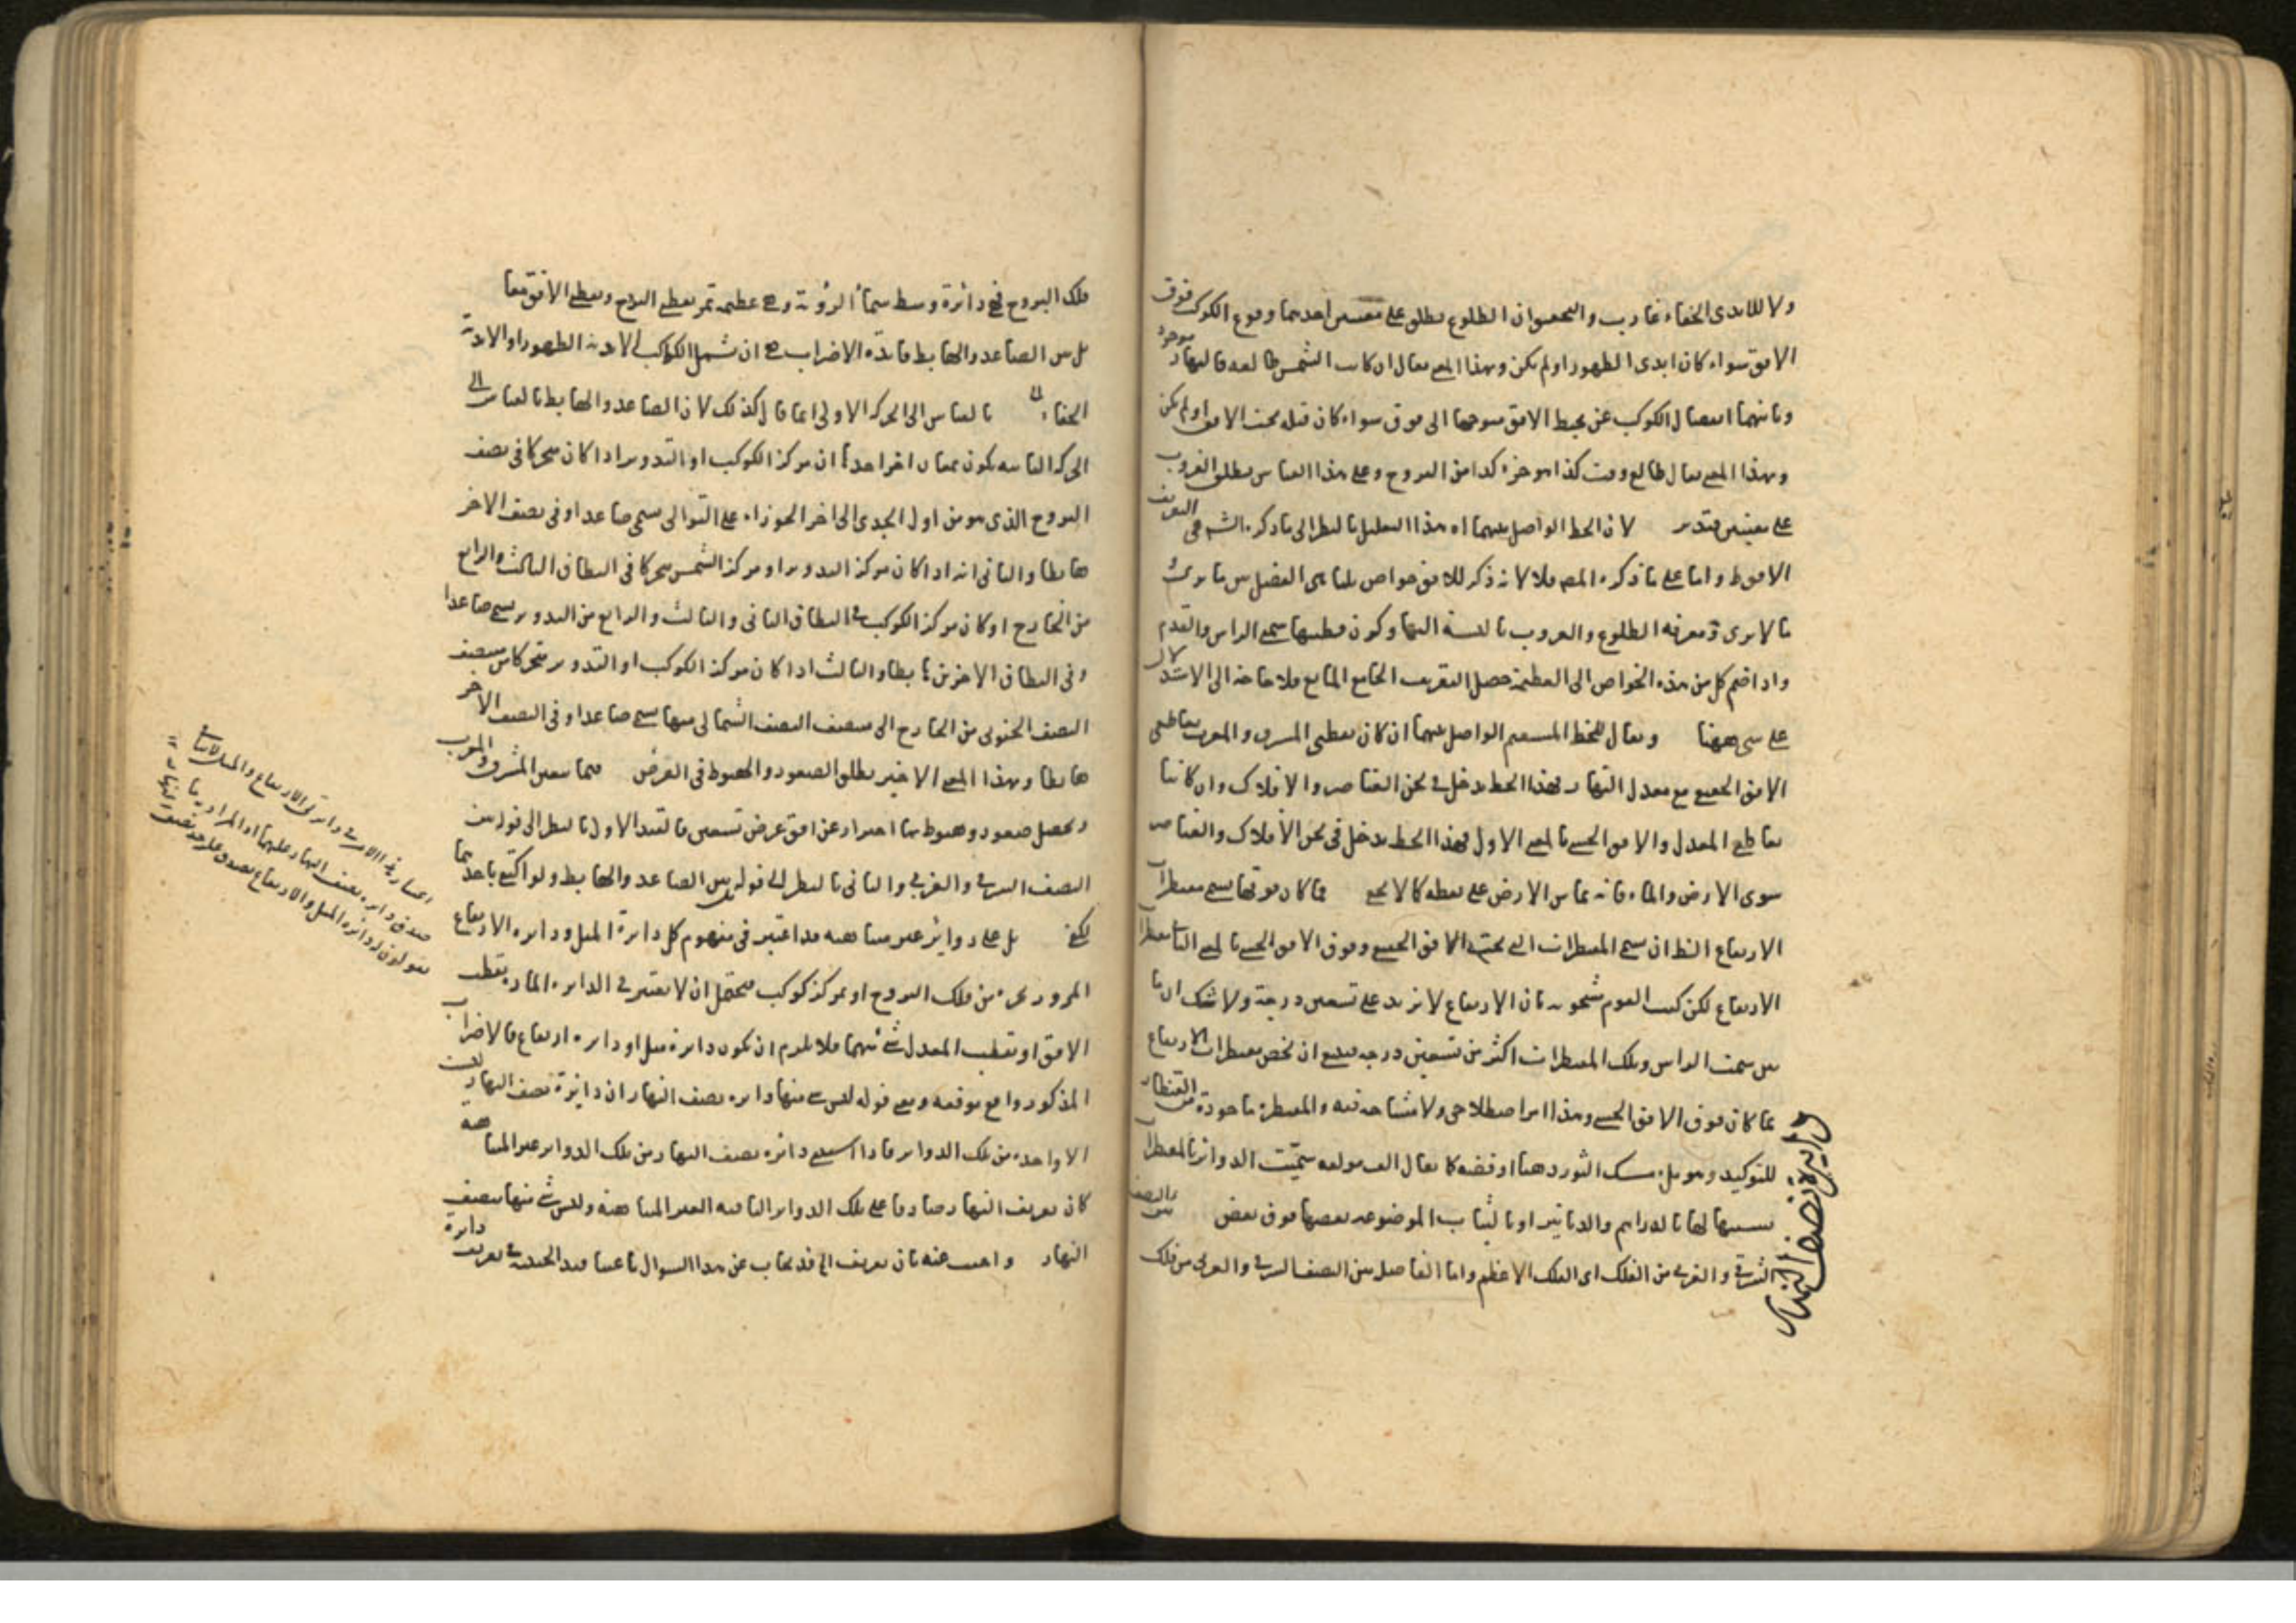 ولا للابدى الخفاء غارب والتحقيق ان الطلوع يطلق على معنيين احدهما وقوع الكوكب فوق
الافق سواء كان ابدى الظهور او لم يكن وبهذا المعنى يقال ان كانت الشمس طالعة فالنهار موجود
وثانيهما انفصال الكوكب عن محيط الافق متوجها الى فوق سواء كان قبله تحت الافق او لم يكن
وبهذا المعنى يقال طالع وقت كذا هو جزء كذا من البروج وعلى هذا القياس يطلق الغروب
على معنيين فتدبر لان الخط الواصل بينهما اه هذا التعليل بالنظر الى ما ذكره الشه فى التعريف
الافق ط واما على ما ذكره المصه فلا لانه ذكر للافق خواص ثلثا هى الفصل بين ما يرى
ما لا يرى ومعرفة الطلوع والغروب بالنسبة اليها وكون قطبيها سمتى الراس والقدم
واذا ضم كل من هذه الخواص الى العظيمة حصل التعريف الجامع المانع فلا حاجة الى الاستدلال
على شى ههنا ويقال للخط المستقيم الواصل بينهما ان كان نقطتى المشرق والمغرب تقاطعى
الافق الحقيقى مع معدل النهار فهذا الخط يدخل فى ثخن العناصر والافلاك وان كانتا
تقاطعى المعدل والافق الحسى بالمعنى الاول فهذا الخط يدخل فى ثخن الافلاك والعناصر
سوى الارض والماء فانه يماس الارض على نقطة كما لا يخفى فما كان فوقها يسمى مقنطرات
الارتفاع الظ ان يسمى المقنطرات التى تحت الافق الحقيقى وفوق الافق الحسى بالمعنى الثانى مقنطرات
الارتفاع لكن كتب القوم مشحونة بان الارتفاع لا يزيد على تسعين درجة ولا شك ان ما
بين سمت الراس وتلك المقنطرات اكثر من تسعين درجة فينبغى ان يخص مقنطرات الارتفاع
بما كان فوق الافق الحسى وهذا امر اصطلاحى ولا مشاحة فيه والمقنطرة ماخوذة من القنطار
للتوكيد وهو ملء مسك الثور ذهبا او فضة كما يقال الف مولفة سميت الدوائر بالمقنطرات
تشبيها لها بالدراهم والدنانير او بالثياب الموضوعة بعضها فوق بعض بين النصف
الشرقى والغربى من الفلك اى الفلك الاعظم واما الفاصل بين النصف الشرقى والغربى من فلك
دائرة نصف النهار
فلك البروج فهى دائرة وسط سماء الرؤية وهى عظيمة تمر بقطبى البروج وبقطبى الافق معا
بل بين الصاعد والهابط فائدة الاضراب هى ان تشمل الكواكب الابدية الظهور او الابدية
الخفاء بالقياس الى الحركة الاولى انما قال كذلك لان الصاعد والهابط بالقياس الى
الحركة الثانية يكون بمعان اخر احدها ان مركز الكوكب او التدوير اذا كان متحركا فى نصف
البروج الذى هو من اول الجدى الى اخر الجوزاء على التوالى يسمى صاعدا وفى نصف الاخر
هابطا والثانى انه اذا كان مركز التدوير او مركز الشمس متحركا فى النطاق الثالث والرابع
من الخارج او كان مركز الكوكب فى النطاق الثانى والثالث والرابع من التدوير يسمى صاعدا
وفى النطاق الاخرين هابطا والثالث اذا كان مركز الكوكب او التدوير متحركا من منتصف
النصف الجنوبى من الخارج الى منتصف النصف الشمالى منها يسمى صاعدا وفى النصف الاخر
هابطا وبهذا المعنى الاخير يطلق الصعود والهبوط فى العرض فيما يتعين المشرق والمغرب
ويحصل صعود وهبوط بها احتراز عن افق عرض تسعين فالقيد الاول بالنظر الى قوله بين
النصف الشرقى والغربى والثانى بالنظر الى قوله بين الصاعد والهابط ولو اكتفى باحدهما
لكفى بل على دوائر غير متناهية قد اعتبر فى مفهوم كل دائرة الميل ودائرة الارتفاع
المرور بجزء من فلك البروج او بمركز كوكب فيحتمل ان لا يعتبر فى الدائرة المارة بقطب
الافق او بقطب المعدل شئ منهما فلا يلزم ان يكون دائرة ميل او دائرة ارتفاع فالاضراب
المذكور واقع موقعه ومعنى قوله ليس شئ منها دائرة نصف النهار ان دائرة نصف النهار ليست
الا واحدة من تلك الدوائر فاذا استثنى دائرة نصف النهار من تلك الدوائر غير المتناهية
كان تعريف النهار صادقا على تلك الدوائر الباقية الغير المتناهية وليس شئ منها بنصف
النهار واجيب عنه بان تعريف الخ قد يجاب عن هذا السؤال باعتبار قيد الحيثية فى تعريف دائرة